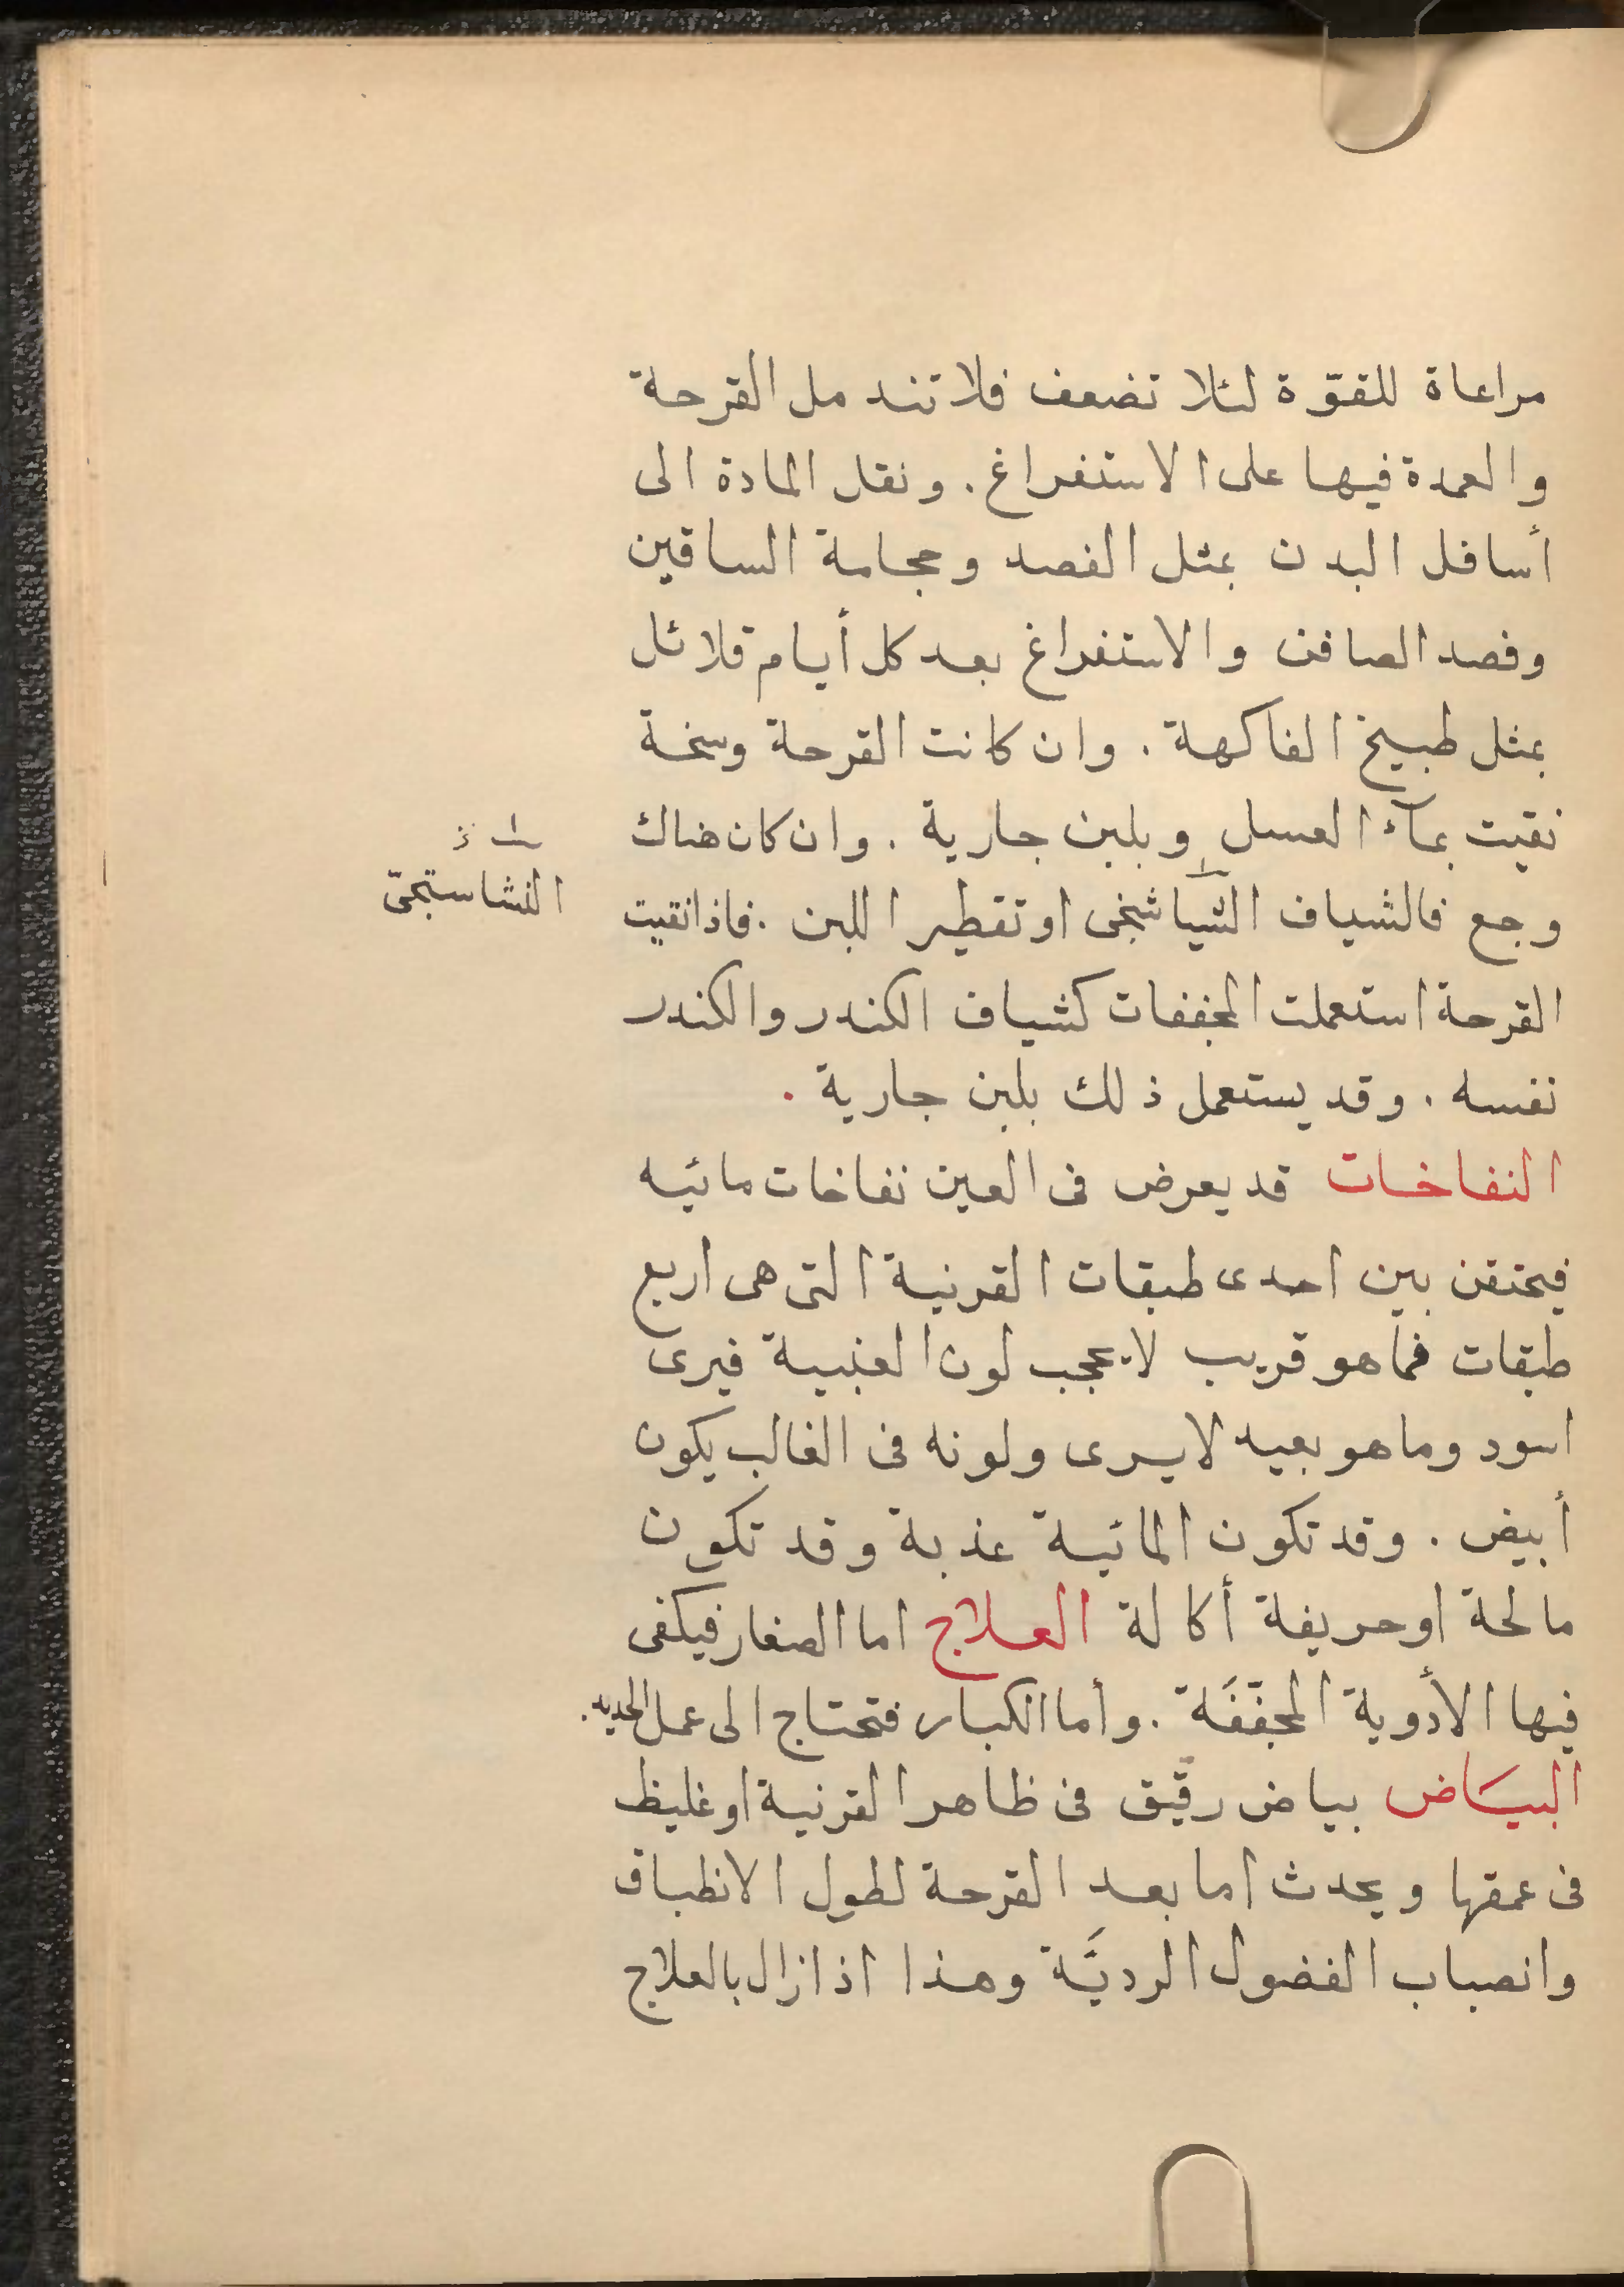 مراعاة للقوّة لئلا تضعف فلا تندمل القرحة
والعمدة فيها على الاستفراغ . ونقل المادة الى
أسافل البدن بمثل الفصد وحجامة الساقين
وفصد الصافن والاستفراغ بعد كل أيام قلائل
بمثل طبيخ الفاكهة . وان كانت القرحة وسخة
نقيت بماء العسل وبلبن جارية . وان كان هناك
وجع فالشياف او تقطير اللبن . فاذا نقيت
النشاستجىّ
القرحة استعملت المجففات كشياف الكندر والكندر
نفسه . وقد يستعمل ذلك بلبن جارية .
النفاخات قد يعرض فى العين نفاخات مائيه
فيحتقن بين احدى طبقات القرنية التى هى اربع
طبقات فما هو قريب لا يحجب لون العنبية فيرى
اسود وما هو بعيد لا يرى ولونه فى الغالب يكون
أبيض . وقد تكون المائية عذبة وقد تكون
مالحة او حريفة أكالة العلاج اما الصغار فيكفى
فيها الأدوية المجفّفَة . وأما الكبار فتحتاج الى عمل الحديد .
البيَاض بياض رقيق فى ظاهر القرنية او غليظ
فى عمقها ويحدث اما بعد القرحة لطول الانطباق
وانصباب الفضول الرديَّة وهذا اذا زال بالعلاج